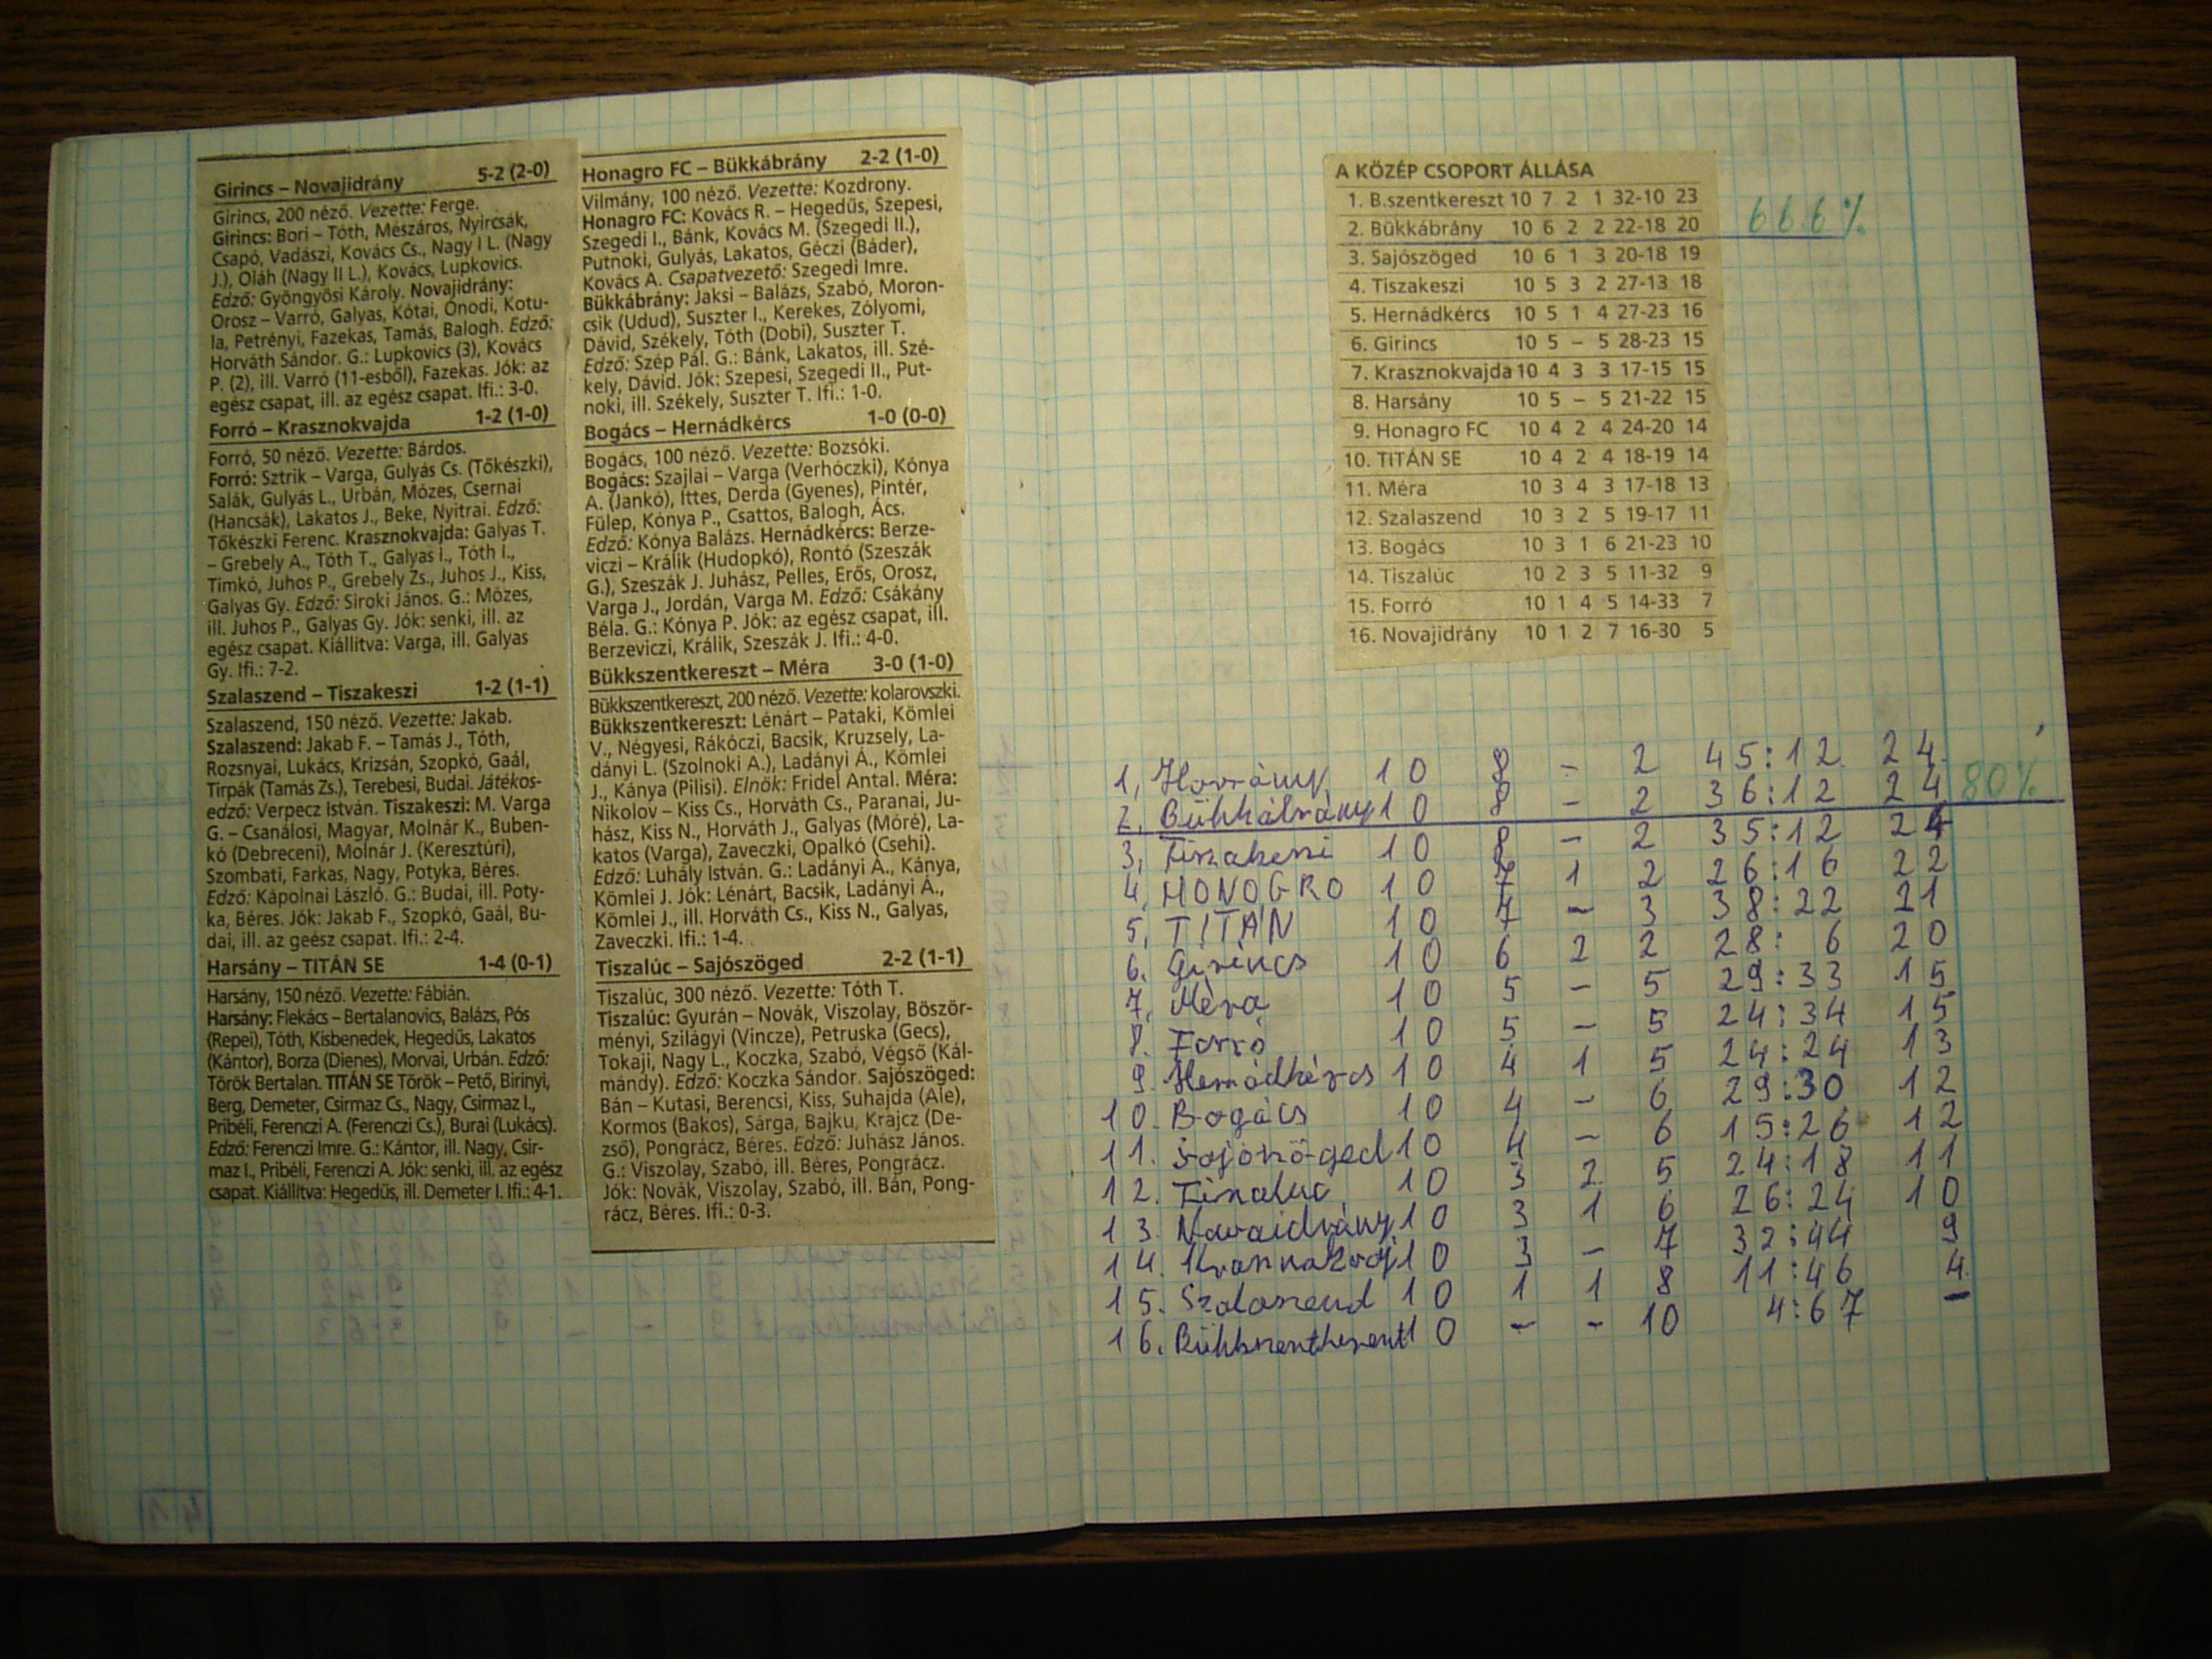 Girincs – Novajidrány 5-2 (2-0)
Girincs, 200 néző. Vezette: Ferge.
Girincs: Bori – Tóth, Mészáros, Nyircsák,
Csapó, Vadászi, Kovács Cs., Nagy I L. (Nagy
J.), Oláh (Nagy II L.), Kovács, Lupkovics.
Edző: Gyöngyösi Károly. Novajidrány:
Orosz – Varró, Galyas, Kótai, Ónodi, Kotu-
la, Petrényi, Fazekas, Tamás, Balogh. Edző:
Horváth Sándor. G.: Lupkovics (3), Kovács
P. (2), ill. Varró (11-esből), Fazekas. Jók: az
egész csapat, ill. az egész csapat. Ifi.: 3-0.
Forró – Krasznokvajda 1-2 (1-0)
Forró, 50 néző. Vezette: Bárdos.
Forró: Sztrik – Varga, Gulyás Cs. (Tőkészki),
Salák, Gulyás L., Urbán, Mózes, Csernai
(Hancsák), Lakatos J., Beke, Nyitrai. Edző:
Tőkészki Ferenc. Krasznokvajda: Galyas T.
– Grebely A., Tóth T., Galyas I., Tóth I.,
Timkó, Juhos P., Grebely Zs., Juhos J., Kiss,
Galyas Gy. Edző: Siroki János. G.: Mózes,
ill. Juhos P., Galyas Gy. Jók: senki, ill. az
egész csapat. Kiállítva: Varga, ill. Galyas
Gy. Ifi.: 7-2.
Szalaszend – Tiszakeszi 1-2 (1-1)
Szalaszend, 150 néző. Vezette: Jakab.
Szalaszend: Jakab F. – Tamás J., Tóth,
Rozsnyai, Lukács, Krizsán, Szopkó, Gaál,
Tirpák (Tamás Zs.), Terebesi, Budai. Játékos-
edző: Verpecz István. Tiszakeszi: M. Varga
G. – Csanálosi, Magyar, Molnár K., Buben-
kó (Debreceni), Molnár J. (Keresztúri),
Szombati, Farkas, Nagy, Potyka, Béres.
Edző: Kápolnai László. G.: Budai, ill. Poty-
ka, Béres. Jók: Jakab F., Szopkó, Gaál, Bu-
dai, ill. az geész csapat. Ifi.: 2-4.
Harsány – TITÁN SE 1-4 (0-1)
Harsány, 150 néző. Vezette: Fábián.
Harsány: Flekács – Bertalanovics, Balázs, Pós
(Repei), Tóth, Kisbenedek, Hegedűs, Lakatos
(Kántor), Borza (Dienes), Morvai, Urbán. Edző:
Török Bertalan. TITÁN SE Török – Pető, Birinyi,
Berg, Demeter, Csirmaz Cs., Nagy, Csirmaz I.,
Pribéli, Ferenczi A. (Ferenczi Cs.), Burai (Lukács).
Edző: Ferenczi Imre. G.: Kántor, ill. Nagy, Csir-
maz I., Pribéli, Ferenczi A. Jók: senki, ill. az egész
csapat. Kiállítva: Hegedűs, ill. Demeter I. Ifi.: 4-1.
Honagro FC – Bükkábrány 2-2 (1-0)
Vilmány, 100 néző. Vezette: Kozdrony.
Honagro FC: Kovács R. – Hegedűs, Szepesi,
Szegedi I., Bánk, Kovács M. (Szegedi II.),
Putnoki, Gulyás, Lakatos, Géczi (Báder),
Kovács A. Csapatvezető: Szegedi Imre.
Bükkábrány: Jaksi – Balázs, Szabó, Moron-
csik (Udud), Suszter I., Kerekes, Zólyomi,
Dávid, Székely, Tóth (Dobi), Suszter T.
Edző: Szép Pál. G.: Bánk, Lakatos, ill. Szé-
kely, Dávid. Jók: Szepesi, Szegedi II., Put-
noki, ill. Székely, Suszter T. Ifi.: 1-0.
Bogács – Hernádkércs 1-0 (0-0)
Bogács, 100 néző. Vezette: Bozsóki.
Bogács: Szajlai – Varga (Verhóczki), Kónya
A. (Jankó), Ittes, Derda (Gyenes), Pintér,
Fülep, Kónya P., Csattos, Balogh, Ács.
Edző: Kónya Balázs. Hernádkércs: Berze-
viczi – Králik (Hudopkó), Rontó (Szeszák
G.), Szeszák J. Juhász, Pelles, Erős, Orosz,
Varga J., Jordán, Varga M. Edző: Csákány
Béla. G.: Kónya P. Jók: az egész csapat, ill.
Berzeviczi, Králik, Szeszák J. Ifi.: 4-0.
Bükkszentkereszt – Méra 3-0 (1-0)
Bükkszentkereszt, 200 néző. Vezette: kolarovszki.
Bükkszentkereszt: Lénárt – Pataki, Kömlei
V., Négyesi, Rákóczi, Bacsik, Kruzsely, La-
dányi L. (Szolnoki A.), Ladányi Á., Kömlei
J., Kánya (Pilisi). Elnök: Fridel Antal. Méra:
Nikolov – Kiss Cs., Horváth Cs., Paranai, Ju-
hász, Kiss N., Horváth J., Galyas (Móré), La-
katos (Varga), Zaveczki, Opalkó (Csehi).
Edző: Luhály István. G.: Ladányi Á., Kánya,
Kömlei J. Jók: Lénárt, Bacsik, Ladányi Á.,
Kömlei J., ill. Horváth Cs., Kiss N., Galyas,
Zaveczki. Ifi.: 1-4.
Tiszalúc – Sajószöged 2-2 (1-1)
Tiszalúc, 300 néző. Vezette: Tóth T.
Tiszalúc: Gyurán – Novák, Viszolay, Böször-
ményi, Szilágyi (Vincze), Petruska (Gecs),
Tokaji, Nagy L., Koczka, Szabó, Végső (Kál-
mándy). Edző: Koczka Sándor. Sajószöged:
Bán – Kutasi, Berencsi, Kiss, Suhajda (Ale),
Kormos (Bakos), Sárga, Bajku, Krajcz (De-
zső), Pongrácz, Béres. Edző: Juhász János.
G.: Viszolay, Szabó, ill. Béres, Pongrácz.
Jók: Novák, Viszolay, Szabó, ill. Bán, Pong-
rácz, Béres. Ifi.: 0-3.
A KÖZÉP CSOPORT ÁLLÁSA
1. B.szentkereszt 10 7 2 1 32-10 23
2. Bükkábrány 10 6 2 2 22-18 20 66.6%
3. Sajószöged 10 6 1 3 20-18 19
4. Tiszakeszi 10 5 3 2 27-13 18
5. Hernádkércs 10 5 1 4 27-23 16
6. Girincs 10 5 – 5 28-23 15
7. Krasznokvajda 10 4 3 3 17-15 15
8. Harsány 10 5 – 5 21-22 15
9. Honagro FC 10 4 2 4 24-20 14
10. TITÁN SE 10 4 2 4 18-19 14
11. Méra 10 3 4 3 17-18 13
12. Szalaszend 10 3 2 5 19-17 11
13. Bogács 10 3 1 6 21-23 10
14. Tiszalúc 10 2 3 5 11-32 9
15. Forró 10 1 4 5 14-33 7
16. Novajidrány 10 1 2 7 16-30 5
1, Harsány 10 8 - 2 45:12 24
2. Bükkábrány 10 8 - 2 36:12 24 80%
3, Tiszakeszi 10 8 - 2 35:12 24
4, HONOGRO 10 7 1 2 26:16 22
5, TITÁN 10 7 - 3 38:22 21
6. Girincs 10 6 2 2 28: 6 20
7, Méra 10 5 - 5 29:33 15
8. Forró 10 5 - 5 24:34 15
9. Hernádkércs 10 4 1 5 24:24 13
10. Bogács 10 4 - 6 29:30 12
11. Sajószöged 10 4 - 6 15:26 12
12. Tiszaluc 10 3 2 5 24:18 11
13. Novaidrány 10 3 1 6 26:24 10
14. Krasznokvaj 10 3 - 7 32:44 9
15. Szalaszend 10 1 1 8 11:46 4
16. Bükkszentkereszt 10 - - 10 4:67 -